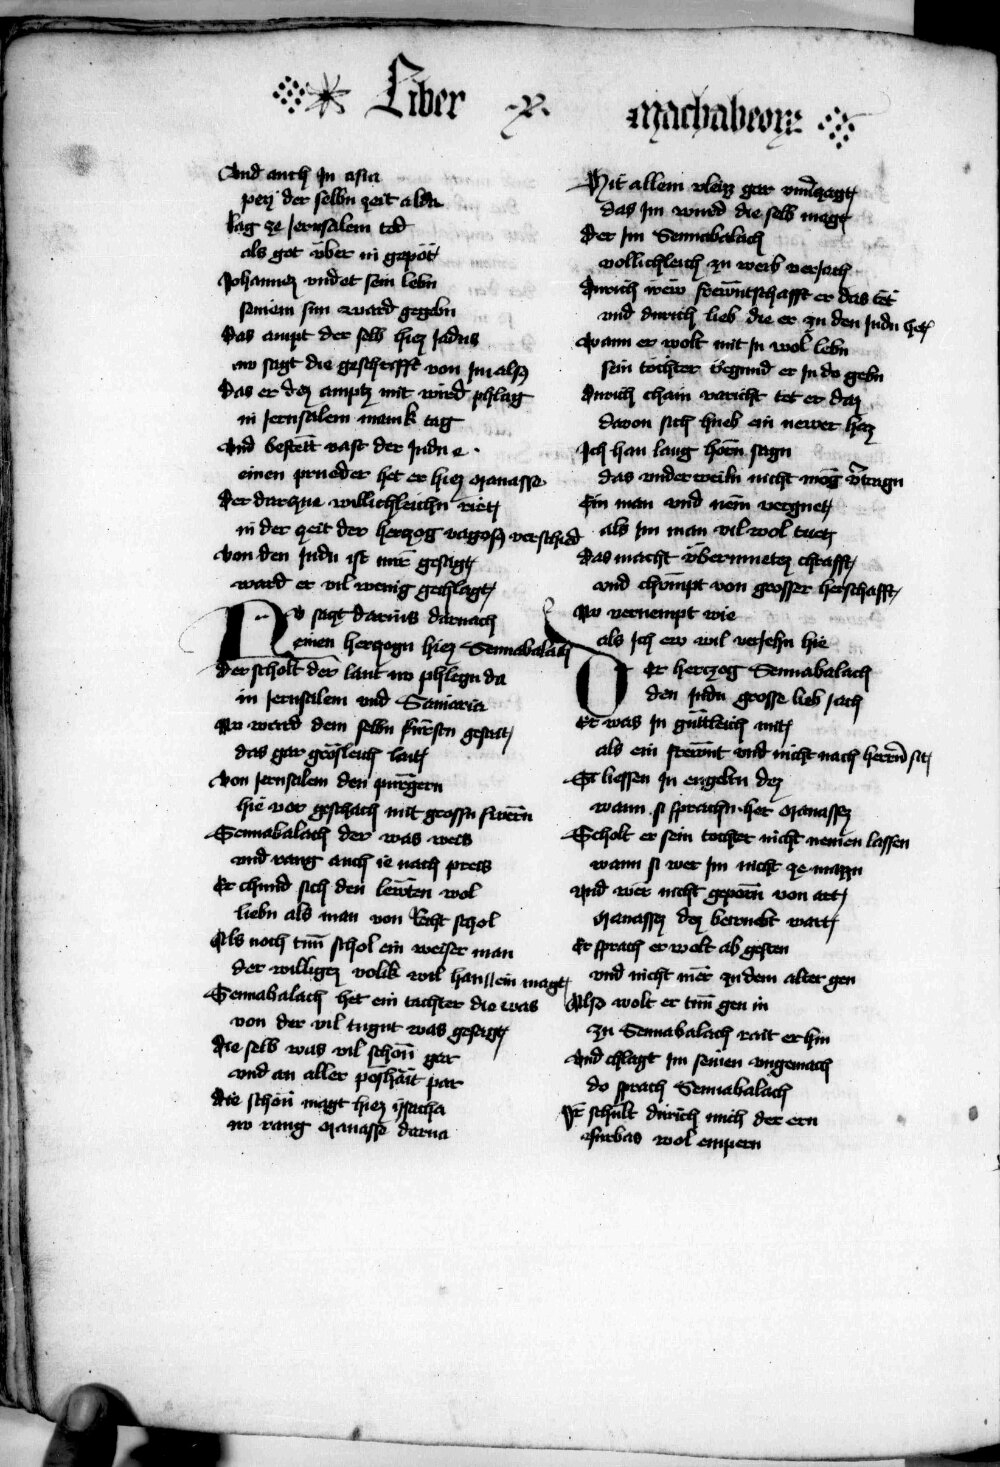 Liber x machabeorum
Vnd auch in asia
pey der selbn zeit alda
lag ze Jerusalem tod
als got über in gepöt
Johannes vndet sein lebn
seinem sun ward gegebn
Das ampt der selb hiez Jadus
nw sagt die geschrifft von im alsus
Das er dez amptz mit wird phlag
in Jerusalem manik tag
Vnd bestett vast der Judn e
einen prueder het er hiez Manasse
Der darzue willichleichn riet
in der zeit der herczog vagosus verschied
Von den Judn ist mir gesagt
ward er vil wenig gechlagt
Nv sagt darius darnach
einen herczogn hiez Sennabalach
Der scholt der lant nw phlegn da
in Jerusalem vnd Samaria
Nw ward dem selbn fürstn gesait
das gar grösleich lait
Von Jerusalem den purgern
hie vor geschach mit grossn swern
Sennabalach der was weis
vnd rang auch ie nach preis
Er chund sich den lewten wol
liebn als man von Recht schol
Als noch tun schol ein weiser man
der willigez volk wil han ein magt
Sennabalach het ein tachter die was
von der vil tugnt was gesagt
Die selb was vil schon gar
vnd an aller poshait par
Die schön magt hiez ysacha
nw rang Manasse darna
Mit allem vleiz gar vnuerzagt
das im wurd die selb magt
Der im Sennabalach
vollichleich zu weib verjach
Durich irew frewntschafft er das tet
vnd durich lieb die er zu den Judn het
Wann er wolt mit in wol lebn
sein tochter begund er in do gebn
Durich chain vericht tet er daz
davon sich hueb ein newer haz
Ich han lang hörn sagn
das vnderweiln nicht mag vertragn
Ein man vnd nem vergnet
als im man vil wol tuet
Das macht übermuetez chrafft
vnd chümpt von grosser herschafft
Nw vernempt wie
als ich ew wil verjehn hie
Der herczog Sennabalach
den Judn grosse lieb jach
Er was in güttleich mit
als ein frewnt vnd nicht nach herrn sit
Si liessen in engeltn dez
wann si sprachn her Manassez
Scholt er sein tochter nicht nemen lassen
wann si wer im nicht ze mazzn
Vnd wer nicht geporn von art
Manassez dez betruebt wart
Er sprach er wolt ab gesten
vnd nicht mer zu dem alter gen
Also wolt er tun gen in
zu Sennabalach rait er hin
Vnd chlagt im seinen vngemach
do sprach Sennabalach
Ir schült durich mich der ern
furbas wol enpern